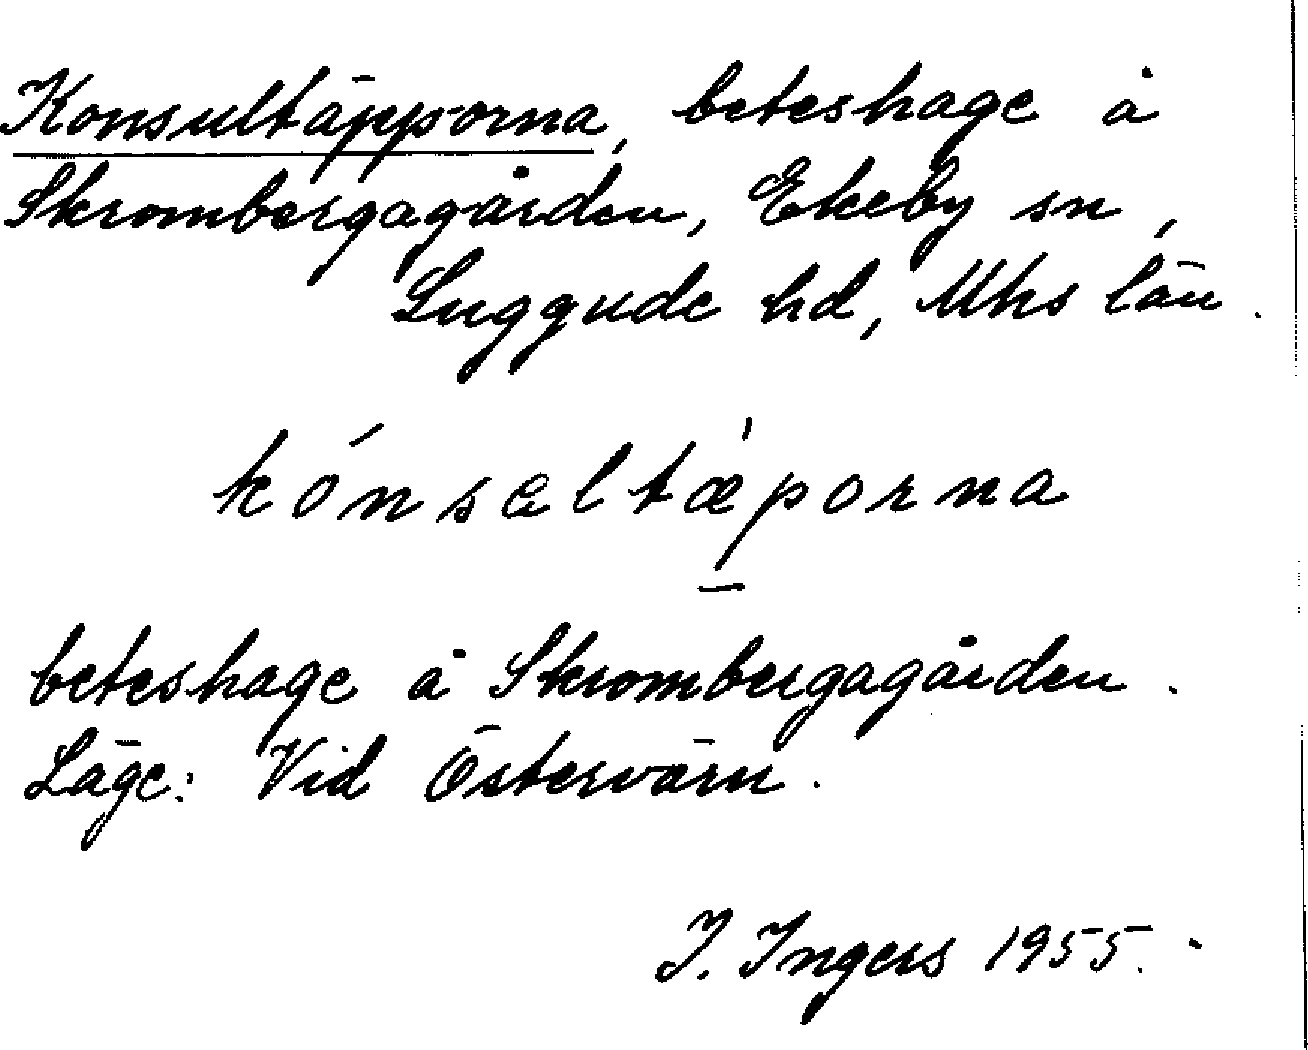 Konsultäpporna, beteshage å
Skrombergagården, Ekeby sn,
Luggude hd, Mhs län.
kónsəltæ̍porna
beteshage å Skrombergagården.
Läge: Vid Östervärn.
I. Ingers 1955.